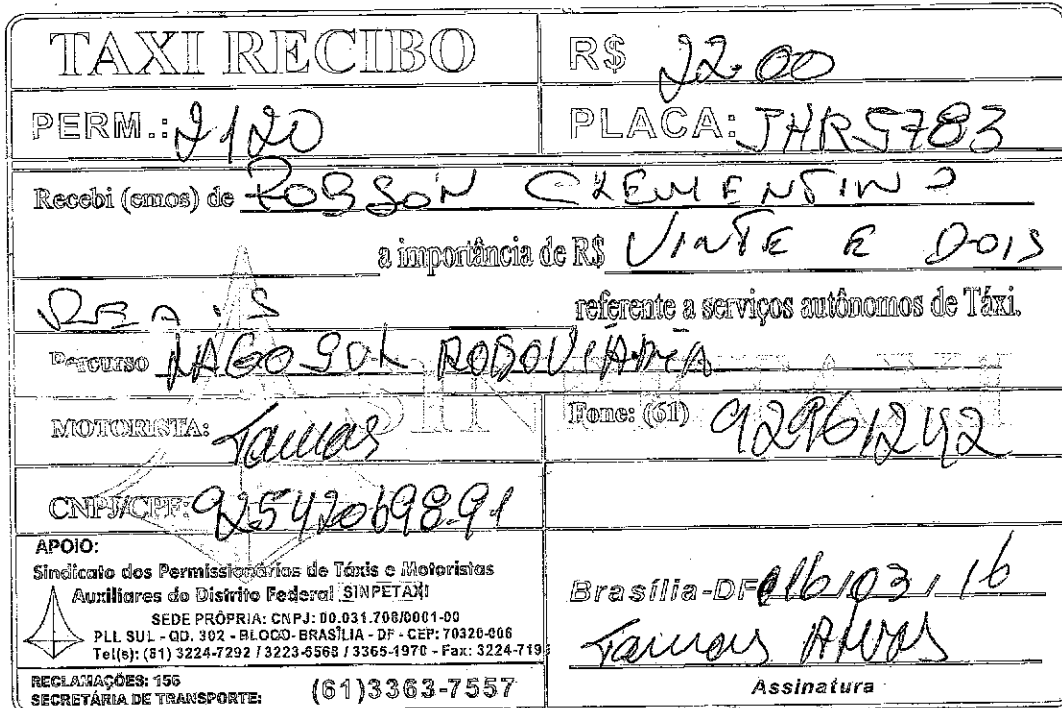 TAXI RECIBO R$ 22.00
PERM.: 2120 PLACA: JHR5783
Recebi (emos) de ROBSON CLEMENTINO
a importância de R$ VINTE E DOIS
REAIS referente a serviços autônomos de Táxi.
Percurso LAGO SUL RODOVIÁRIA
SINPETAXI
MOTORISTA: Fone: (61) 92961242
CNPJ/CPF: 9254206989.1
APOIO:
Sindicato dos Permissionários de Táxis e Motoristas
Auxiliares do Distrito Federal SINPETAXI
SEDE PRÓPRIA: CNPJ: 00.031.708/0001-00
PLL SUL - QD. 302 - BLOCO-BRASÍLIA - DF - CEP: 70320-006
Tel(s): (61) 3224-7292 / 3223-6568 / 3365-1970 - Fax: 3224-719
Brasília-DF 16/03/16
RECLAMAÇÕES: 156
SECRETÁRIA DE TRANSPORTE: (61)3363-7557
Assinatura